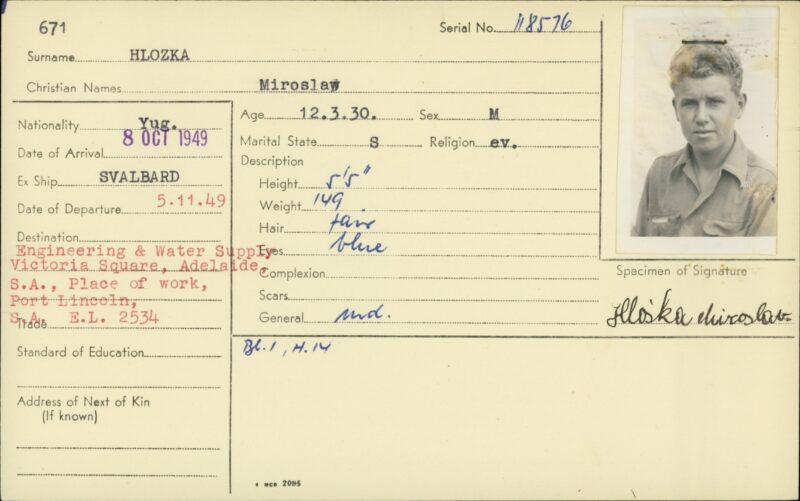 671
Serial No. 118576
Surname HLOZKA
Christian Names Miroslaw
Nationality Yug.
Date of Arrival 8 OCT 1949
Ex Ship SVALBARD
Date of Departure 5.11.49
Destination
Engineering & Water Supply
Victoria Square, Adelaide,
S.A., Place of work,
Port Lincoln,
S.A. E.L. 2534
Trade
Standard of Education
Address of Next of Kin
(If known)
Age 12.3.30. Sex M
Marital State S Religion ev.
Description
Height 5'5"
Weight 149
Hair fair
Eyes blue
Complexion
Scars
General md.
Bl.1, H.14
Specimen of Signature
Hložka Miroslav